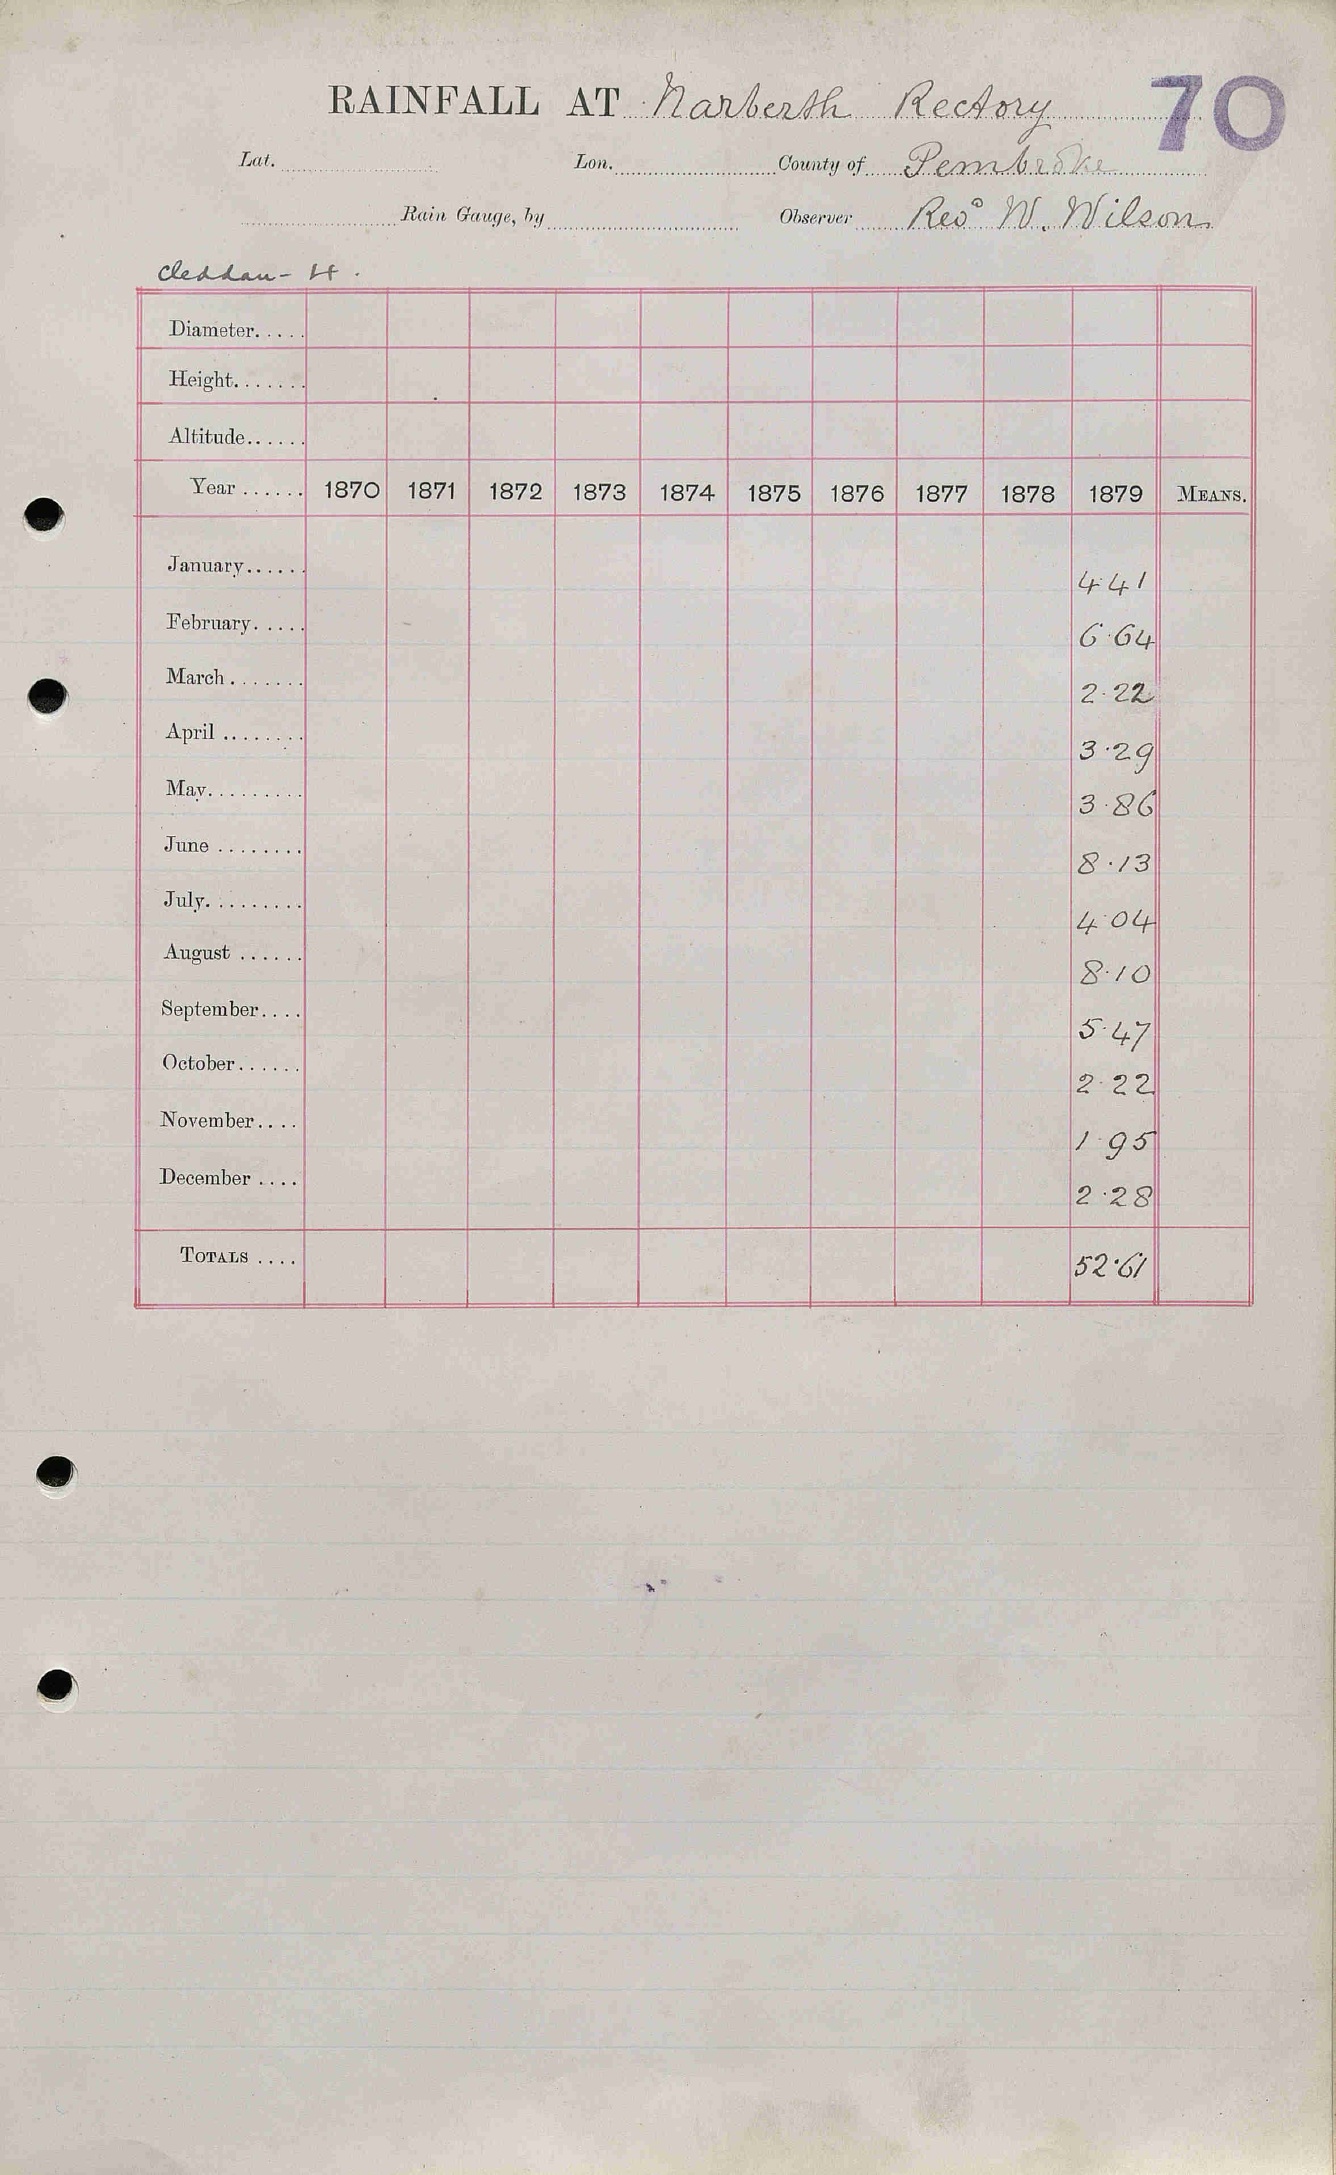 RAINFALL AT Narberth Rectory 70
Lat. Lon. County of Pembroke
Rain Gauge, by Observer Revd W. Wilson
Cleddau - H.
Diameter.....
Height.......
Altitude......
Year ...... 1870 1871 1872 1873 1874 1875 1876 1877 1878 1879 MEANS.
January...... 4.41
February..... 6.64
March ....... 2.22
April ........ 3.29
May......... 3.86
June ........ 8.13
July......... 4.04
August ...... 8.10
September.... 5.47
October...... 2.22
November.... 1.95
December .... 2.28
TOTALS .... 52.61